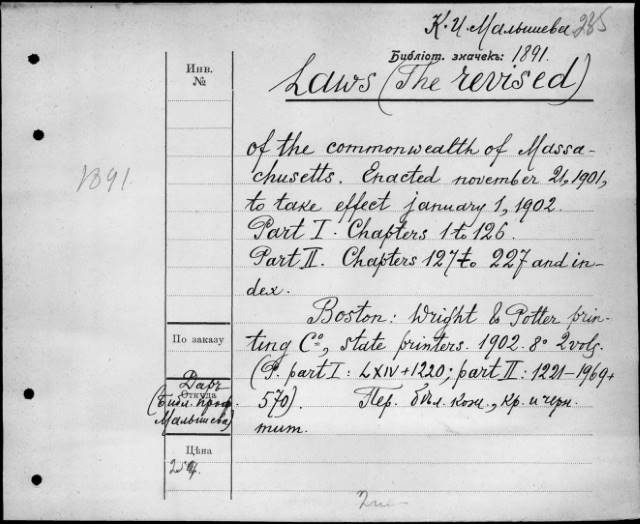 К. И. Малышева 285
Библіот. значекъ: 1891.
Инв.
№
Laws (The revised)
of the commonwealth of Massa-
chusetts. Enacted november 21, 1901,
1891
to take effect january 1, 1902.
Part I. Chapters 1 to 126.
Part II. Chapters 127 to 227 and in-
dex.
Boston: Wright & Potter prin-
По заказу
ting Cº, state printers. 1902. 8º 2 vols.
(P. part I: LXIV+1220; part II: 1221-1969+
Даръ
Откуда
(Библ. проф.
Малышева)
570). Пер. бѣл. кож., кр. и черн.
тит.
Цѣна